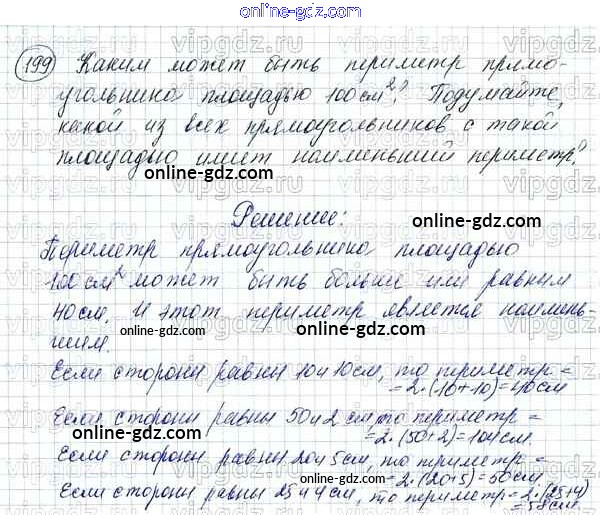 online-gdz.com
199 Каким может быть периметр прямо-
угольника площадью 100 см²? Подумайте,
какой из всех прямоугольников с такой
площадью имеет наименьший периметр?
Решение:
online-gdz.com
Периметр прямоугольника площадью
online-gdz.com
100 см² может быть больше или равным
40 см. И этот периметр является наимень-
online-gdz.com
шим.
Если стороны равны 10 и 10 см, то периметр =
= 2·(10+10)=40 см
online-gdz.com
Если стороны равны 50 и 2 см, то периметр =
= 2·(50+2)=104 см.
online-gdz.com
Если стороны равны 20 и 5 см, то периметр =
= 2·(20+5)=50 см.
online-gdz.com
Если стороны равны 25 и 4 см, то периметр = 2·(25+4)
= 58 см.